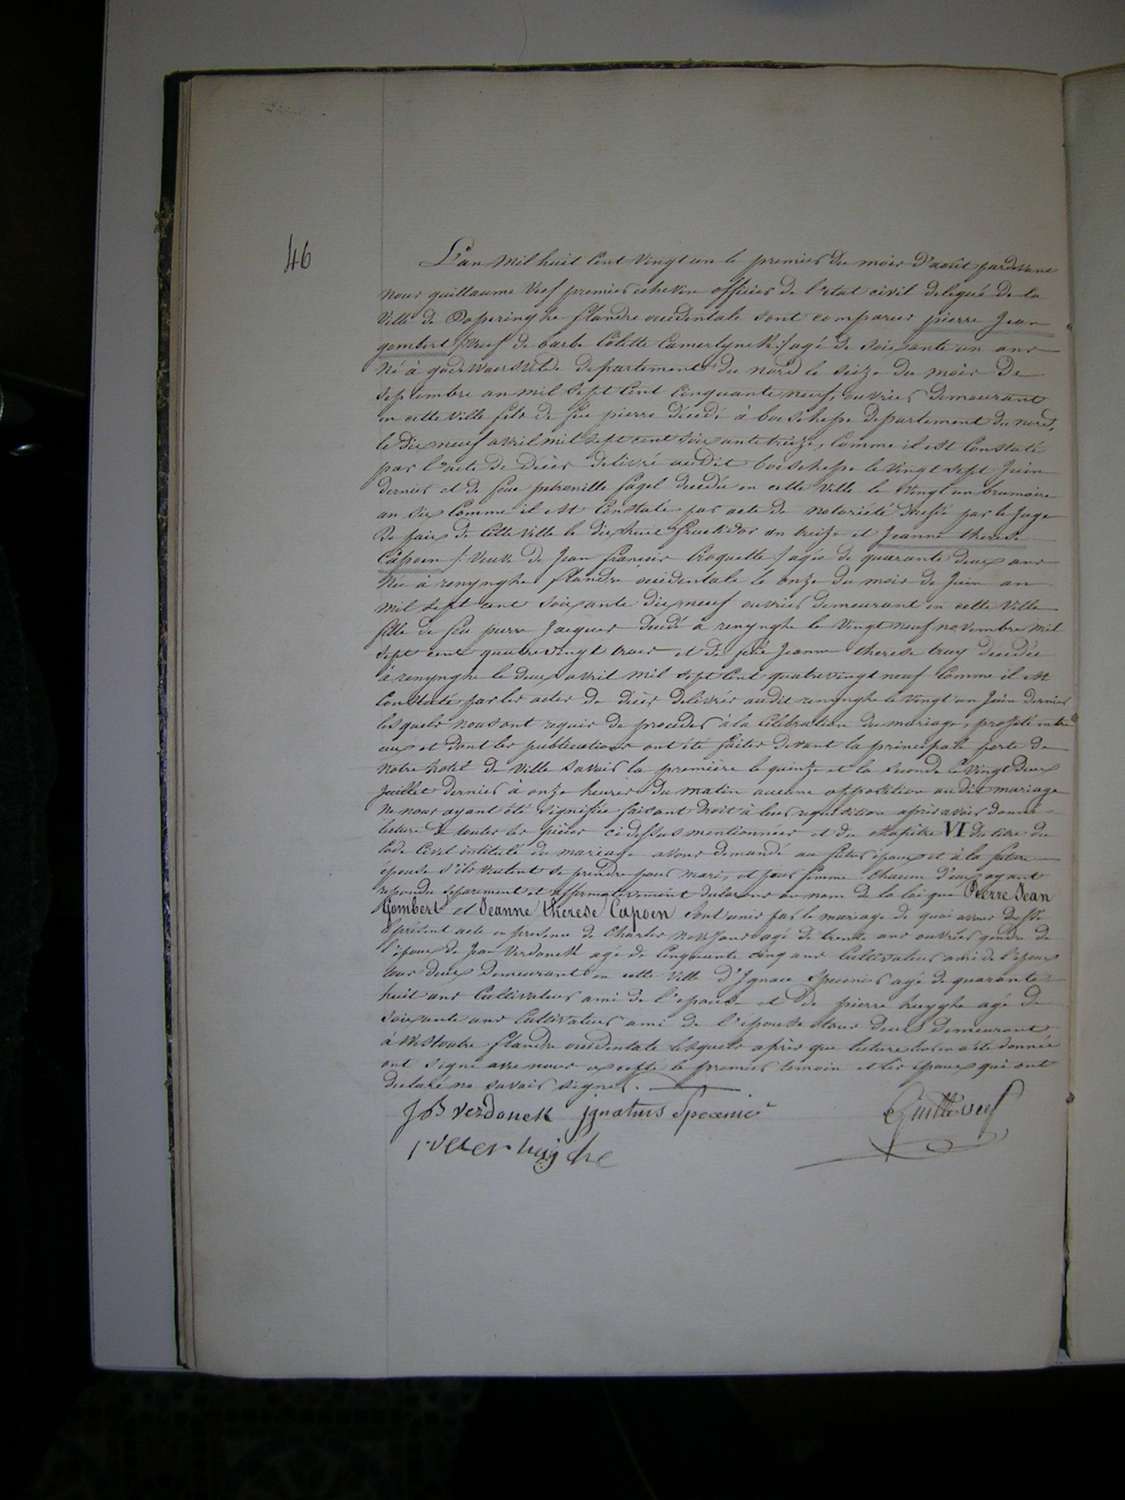 46
L'an mil huit Cent vingt un le premier du mois d'août pardevant
nous guillaume veef premier echevin officier de l'etat civil delegué de la
Ville de Poperinghe flandre occidentale sont comparus pierre Jean
gombert /: veuf de barbe Colette Camerlynck :/ agé de Soixante un ans
né à godewaersvelde departement du nord le Seize du mois de
Septembre an mil Sept Cent Cinquante neuf, ouvrier demeurant
en cette ville fils de feu pierre décédé à boeschepe departement du nord,
le dix neuf avril mil Sept cent Soixante treize, Comme il est Constaté
par l'acte de Décès delivré audit boeschepe le vingt Sept Juin
dernier et de feue petronille fagel decedée en cette Ville le vingt un brumaire
an six Comme il est Constaté par acte de notoriété dressé par le Juge
De paix de Cette Ville le dix huit fructidor an treize et Jeanne therese
Capoen /: Veuve de Jean francois Roquette :/ agée de quarante deux ans
Née à renynghe flandre occidentale le onze du mois de Juin an
mil Sept cent Soixante dix neuf ouvrier demeurant en cette Ville
fille de feu pierre Jacques decedé à renynghe le vingt neuf novembre mil
Sept cent quatre vingt trois et de feue Jeanne therese truy decedée
à renynghe le deux avril mil Sept Cent quatre vingt neuf Comme il est
Constaté par les actes de décès delivrés audit renynghe le vingt un Juin dernier
lesquels nous ont requis de proceder à la Célébration du mariage projeté entre
eux et dont les publications ont été faites devant la principale porte de
notre hotel de Ville Savoir la première le quinze et la Seconde le vingt Deux
Juillet dernier à onze heures du matin aucune opposition audit mariage
Ne nous ayant été Signifiée faisant droit à leur requisition après avoir donné
lecture de toutes les pièces ci dessus mentionnées et du chapitre VI du titre du
Code Civil intitulé du mariage avons demandé au futur époux et à la future
épouse s'ils veulent se prendre pour mari et pour femme Chacun d'eux ayant
repondu Separement et affirmativement declarons au nom de la loi que Pierre Jean
Gombert et Jeanne therese Capoen Sont unis par le mariage de quoi avons dressé
le présent acte en presence de Charles agé de trente ans ouvrier gendre de
l'époux de Jean Verdonck agé de Cinquante Cinq ans Cultivateur ami de l'epoux
tous deux demeurant en cette Ville d'Ignace agé de quarante
huit ans Cultivateur ami de l'epouse et de pierre huyghe agé de
Soixante ans Cultivateur ami de l'épouse tous deux demeurant
à Westoutre flandre occidentale lesquels après que lecture leur en a été donnée
ont Signé avec nous excepté le premier temoin et les epoux qui ont
declaré ne Savoir Signer.
JB verdonck ignatius Guille veef
pieter huyghe